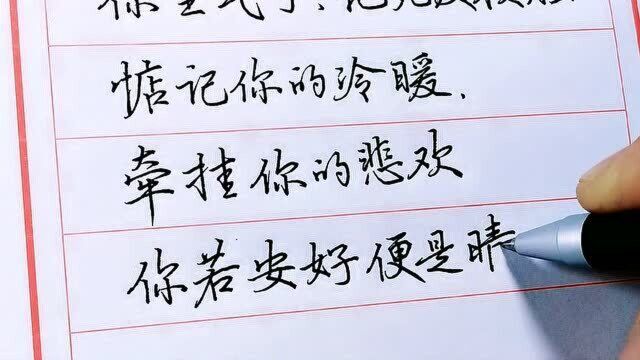 惦记你的冷暖.
牵挂你的悲欢
你若安好便是晴